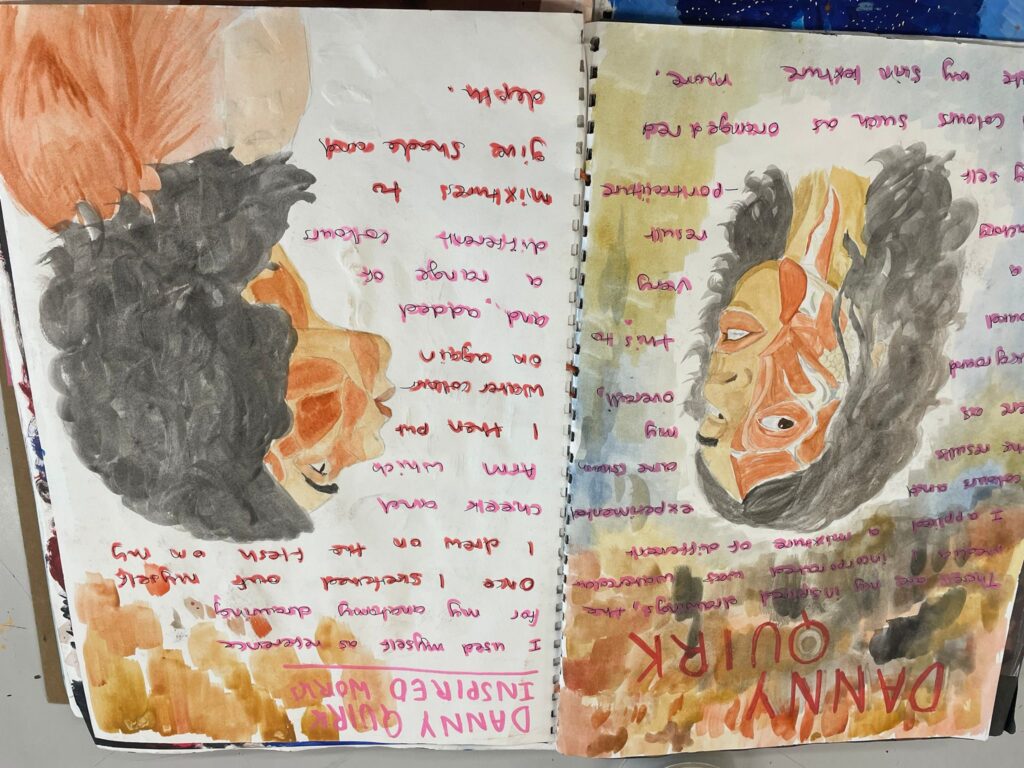 DANNY
QUIRK
These are my inspired drawings, the
media I incorporated was watercolour
I applied a mixture of different
colours and experimental
the results are shown
ere as my
overall,
oured this to
a very
factory result
self -portraiture
colours such as oranges red
my skin texture more.
DANNY QUIRK
INSPIRED WORK
I used myself as reference
for my anatomy drawing
Once I sketched out myself
I drew on the flesh on my
cheek and
Arm which
I then put
water colour
on again
and, added
a range of
different colours
mixtures to
give shade and
depth.